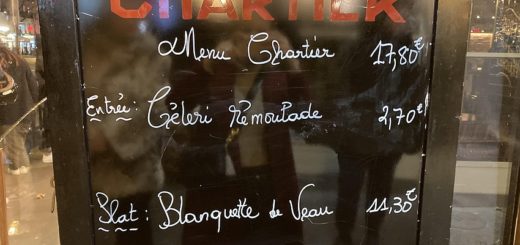 CHARTIER
Menu Chartier 17,80€
Entrée: Cèleri Rémoulade 2,70€
Plat: Blanquette de Veau 11,30€